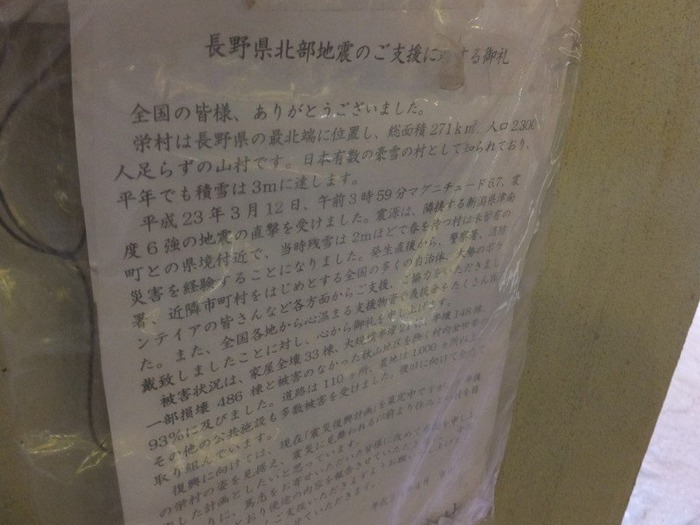 長野県北部地震のご支援に する御礼
全国の皆様、ありがとうございました。
栄村は長野県の最北端に位置し、総面積271k㎡、人口2,300
人足らずの山村です。日本有数の豪雪の村として知られており、
平年でも積雪は3mに達します。
平成23年3月12日、午前3時59分マグニチュード6.7、震
度6強の地震の直撃を受けました。震源は、隣接する新潟県津南
町との県境付近で、当時残雪は2mほどで春を待つ村は未曾有の
災害を経験することになりました。発生直後から、警察署、消防
署、近隣市町村をはじめとする全国の多くの自治体、大勢のボラ
ンテイアの皆さんなど各方面からご支援、ご協力をいただきまし
た。また、全国各地から心温まる支援物資や義援金をたくさん頂
戴致しましたことに対し、心から御礼を申し上げます。
被害状況は、家屋全壊33棟、大規模半壊 半壊148棟、
一部損壊 486 棟と被害のなかった秋山地区を除く村内全世帯の
93%に及びました。道路は110ヶ所、農地は1,000ヶ所以上、
その他の公共施設も多数被害を受けました。復旧に向けて
取り組んでいます。
復興に向けては、現在「震災復興計画」を策定中ですが、今後
の栄村の姿を見据え、震災に見舞われる以前より
した計画としたいと思っています。